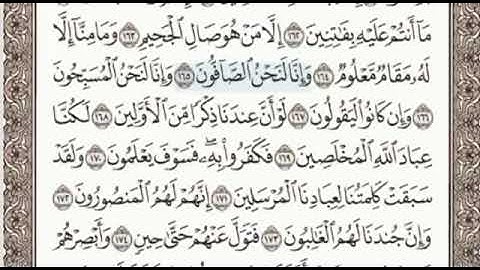 مَآ أَنتُمْ عَلَيْهِ بِفَٰتِنِينَ ١٦٢ إِلَّا مَنْ هُوَ صَالِ ٱلْجَحِيمِ ١٦٣ وَمَا مِنَّآ إِلَّا
لَهُۥ مَقَامٌ مَّعْلُومٌ ١٦٤ وَإِنَّا لَنَحْنُ ٱلصَّآفُّونَ ١٦٥ وَإِنَّا لَنَحْنُ ٱلْمُسَبِّحُونَ
١٦٦ وَإِن كَانُوا۟ لَيَقُولُونَ ١٦٧ لَوْ أَنَّ عِندَنَا ذِكْرًا مِّنَ ٱلْأَوَّلِينَ ١٦٨ لَكُنَّا
عِبَادَ ٱللَّهِ ٱلْمُخْلَصِينَ ١٦٩ فَكَفَرُوا۟ بِهِۦ ۖ فَسَوْفَ يَعْلَمُونَ ١٧٠ وَلَقَدْ
سَبَقَتْ كَلِمَتُنَا لِعِبَادِنَا ٱلْمُرْسَلِينَ ١٧١ إِنَّهُمْ لَهُمُ ٱلْمَنصُورُونَ ١٧٢
وَإِنَّ جُندَنَا لَهُمُ ٱلْغَٰلِبُونَ ١٧٣ فَتَوَلَّ عَنْهُمْ حَتَّىٰ حِينٍ ١٧٤ وَأَبْصِرْهُمْ